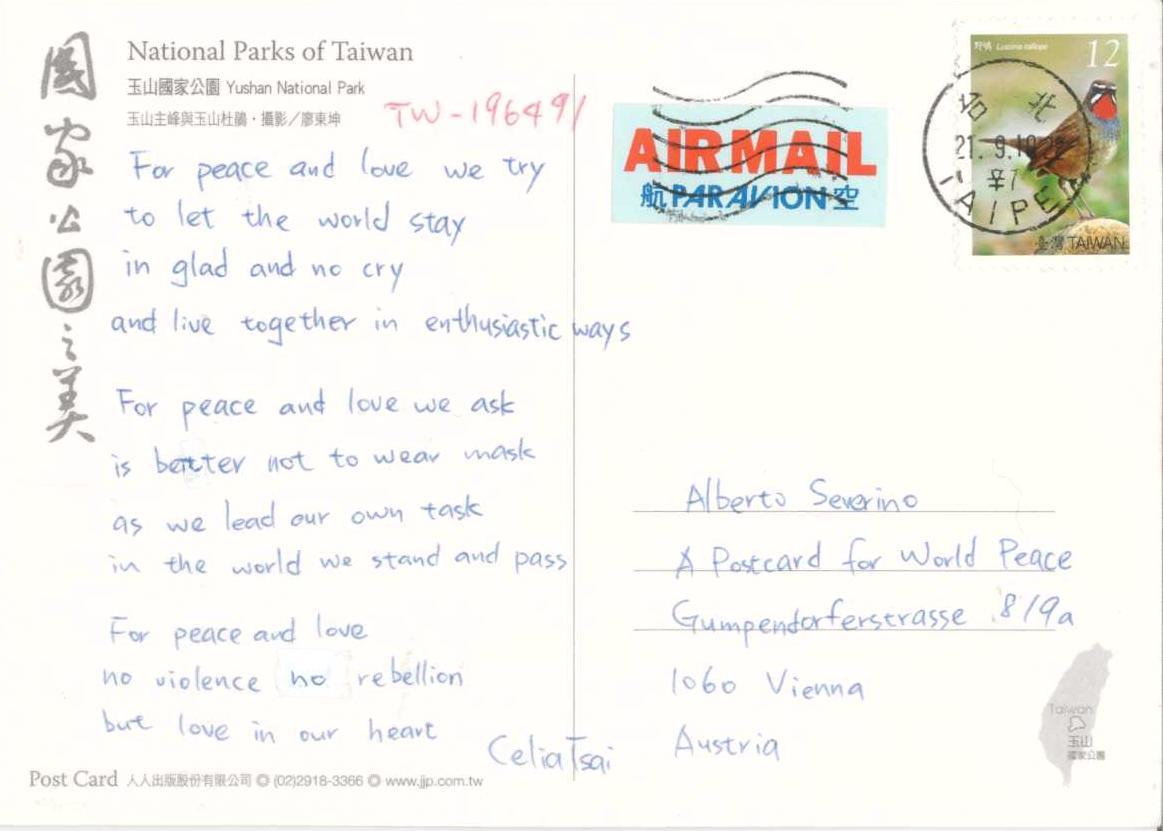 國家公園之美
National Parks of Taiwan
玉山國家公園 Yushan National Park
玉山主峰與玉山杜鵑・攝影/廖東坤
TW-196491
For peace and love we try
to let the world stay
in glad and no cry
and live together in enthusiastic ways
For peace and love we ask
is better not to wear mask
as we lead our own task
in the world we stand and pass
For peace and love
no violence no rebellion
but love in our heart
Celia Tsai
Post Card 人人出版股份有限公司 ◎ (02)2918-3366 ◎ www.jjp.com.tw
AIRMAIL
航 PAR AVION 空
野鴝 Luscinia calliope
12
台北
21. 9.10
TAIPEI
臺灣 TAIWAN
Alberto Severino
A Postcard for World Peace
Gumpendorferstrasse 8/9a
1060 Vienna
Austria
Taiwan
玉山
國家公園